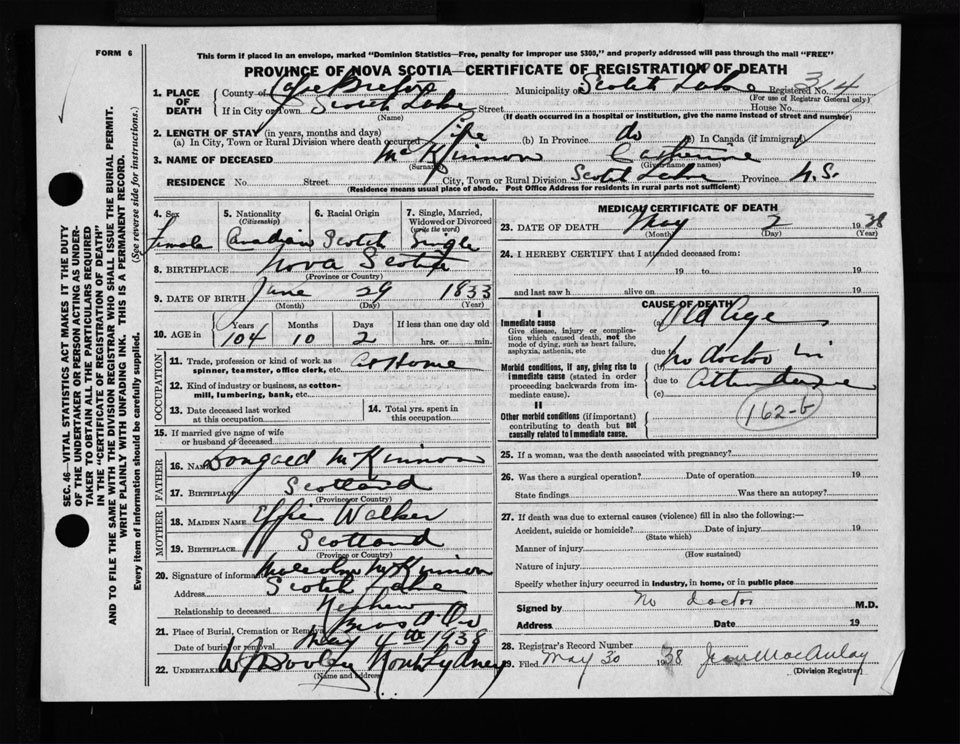 FORM 6
This form if placed in an envelope, marked "Dominion Statistics—Free, penalty for improper use $300," and properly addressed will pass through the mail "FREE"
PROVINCE OF NOVA SCOTIA—CERTIFICATE OF REGISTRATION OF DEATH
1. PLACE OF DEATH
County of Cape Breton Municipality of Scotch Lake Registered No. 314
(For use of Registrar General only)
If in City or Town Scotch Lake Street House No.
(Name) (If death occurred in a hospital or institution, give the name instead of street and number)
2. LENGTH OF STAY (in years, months and days)
(a) In City, Town or Rural Division where death occurred Life (b) In Province do (c) In Canada (if immigrant)
3. NAME OF DECEASED McKinnon Catherine
(Surname) (Given name or names)
RESIDENCE No. Street City, Town or Rural Division Scotch Lake Province N.S.
(Residence means usual place of abode. Post Office Address for residents in rural parts not sufficient)
4. Sex Female
5. Nationality (Citizenship) Canadian
6. Racial Origin Scotch
7. Single, Married, Widowed or Divorced (write the word) Single
8. BIRTHPLACE Nova Scotia
(Province or Country)
9. DATE OF BIRTH June 29 1833
(Month) (Day) (Year)
10. AGE in Years 104 Months 10 Days 2 If less than one day old hrs. or min.
OCCUPATION
11. Trade, profession or kind of work as spinner, teamster, office clerk, etc. At Home
12. Kind of industry or business, as cotton-mill, lumbering, bank, etc.
13. Date deceased last worked at this occupation
14. Total yrs. spent in this occupation
15. If married give name of wife or husband of deceased
FATHER
16. Name McKinnon
17. Birthplace Scotland
(Province or Country)
MOTHER
18. Maiden Name Effie Walker
19. Birthplace Scotland
(Province or Country)
20. Signature of informant Malcolm McKinnon
Address Scotch Lake
Relationship to deceased Nephew
21. Place of Burial, Cremation or Removal Bras d'Or
Date of burial or removal May 4th 1938
22. Undertaker W. J. Dooley North Sydney
(Name and address)
MEDICAL CERTIFICATE OF DEATH
23. DATE OF DEATH May 2 1938
(Month) (Day) (Year)
24. I HEREBY CERTIFY that I attended deceased from:
19 to 19
and last saw h alive on 19
CAUSE OF DEATH
I
Immediate cause
Give disease, injury or complication which caused death, not the mode of dying, such as heart failure, asphyxia, asthenia, etc
(a) Old Age
due to
(b) No doctor in
Morbid conditions, if any, giving rise to immediate cause (stated in order proceeding backwards from immediate cause).
due to attendance
(c)
162-b
II
Other morbid conditions (if important) contributing to death but not causally related to immediate cause.
25. If a woman, was the death associated with pregnancy?
26. Was there a surgical operation? Date of operation 19
State findings Was there an autopsy?
27. If death was due to external causes (violence) fill in also the following:—
Accident, suicide or homicide? Date of injury 19
(State which)
Manner of injury
(How sustained)
Nature of injury
Specify whether injury occurred in industry, in home, or in public place
Signed by No doctor M.D.
Address Date 19
28. Registrar's Record Number
29. Filed May 30 1938 Jean MacAulay
(Division Registrar)
SEC. 46—VITAL STATISTICS ACT MAKES IT THE DUTY
OF THE UNDERTAKER OR PERSON ACTING AS UNDER-
TAKER TO OBTAIN ALL THE PARTICULARS REQUIRED
IN THE "CERTIFICATE OF REGISTRATION OF DEATH"
AND TO FILE THE SAME WITH THE DIVISION REGISTRAR WHO SHALL ISSUE THE BURIAL PERMIT.
WRITE PLAINLY WITH UNFADING INK. THIS IS A PERMANENT RECORD.
Every item of information should be carefully supplied. (See reverse side for instructions.)